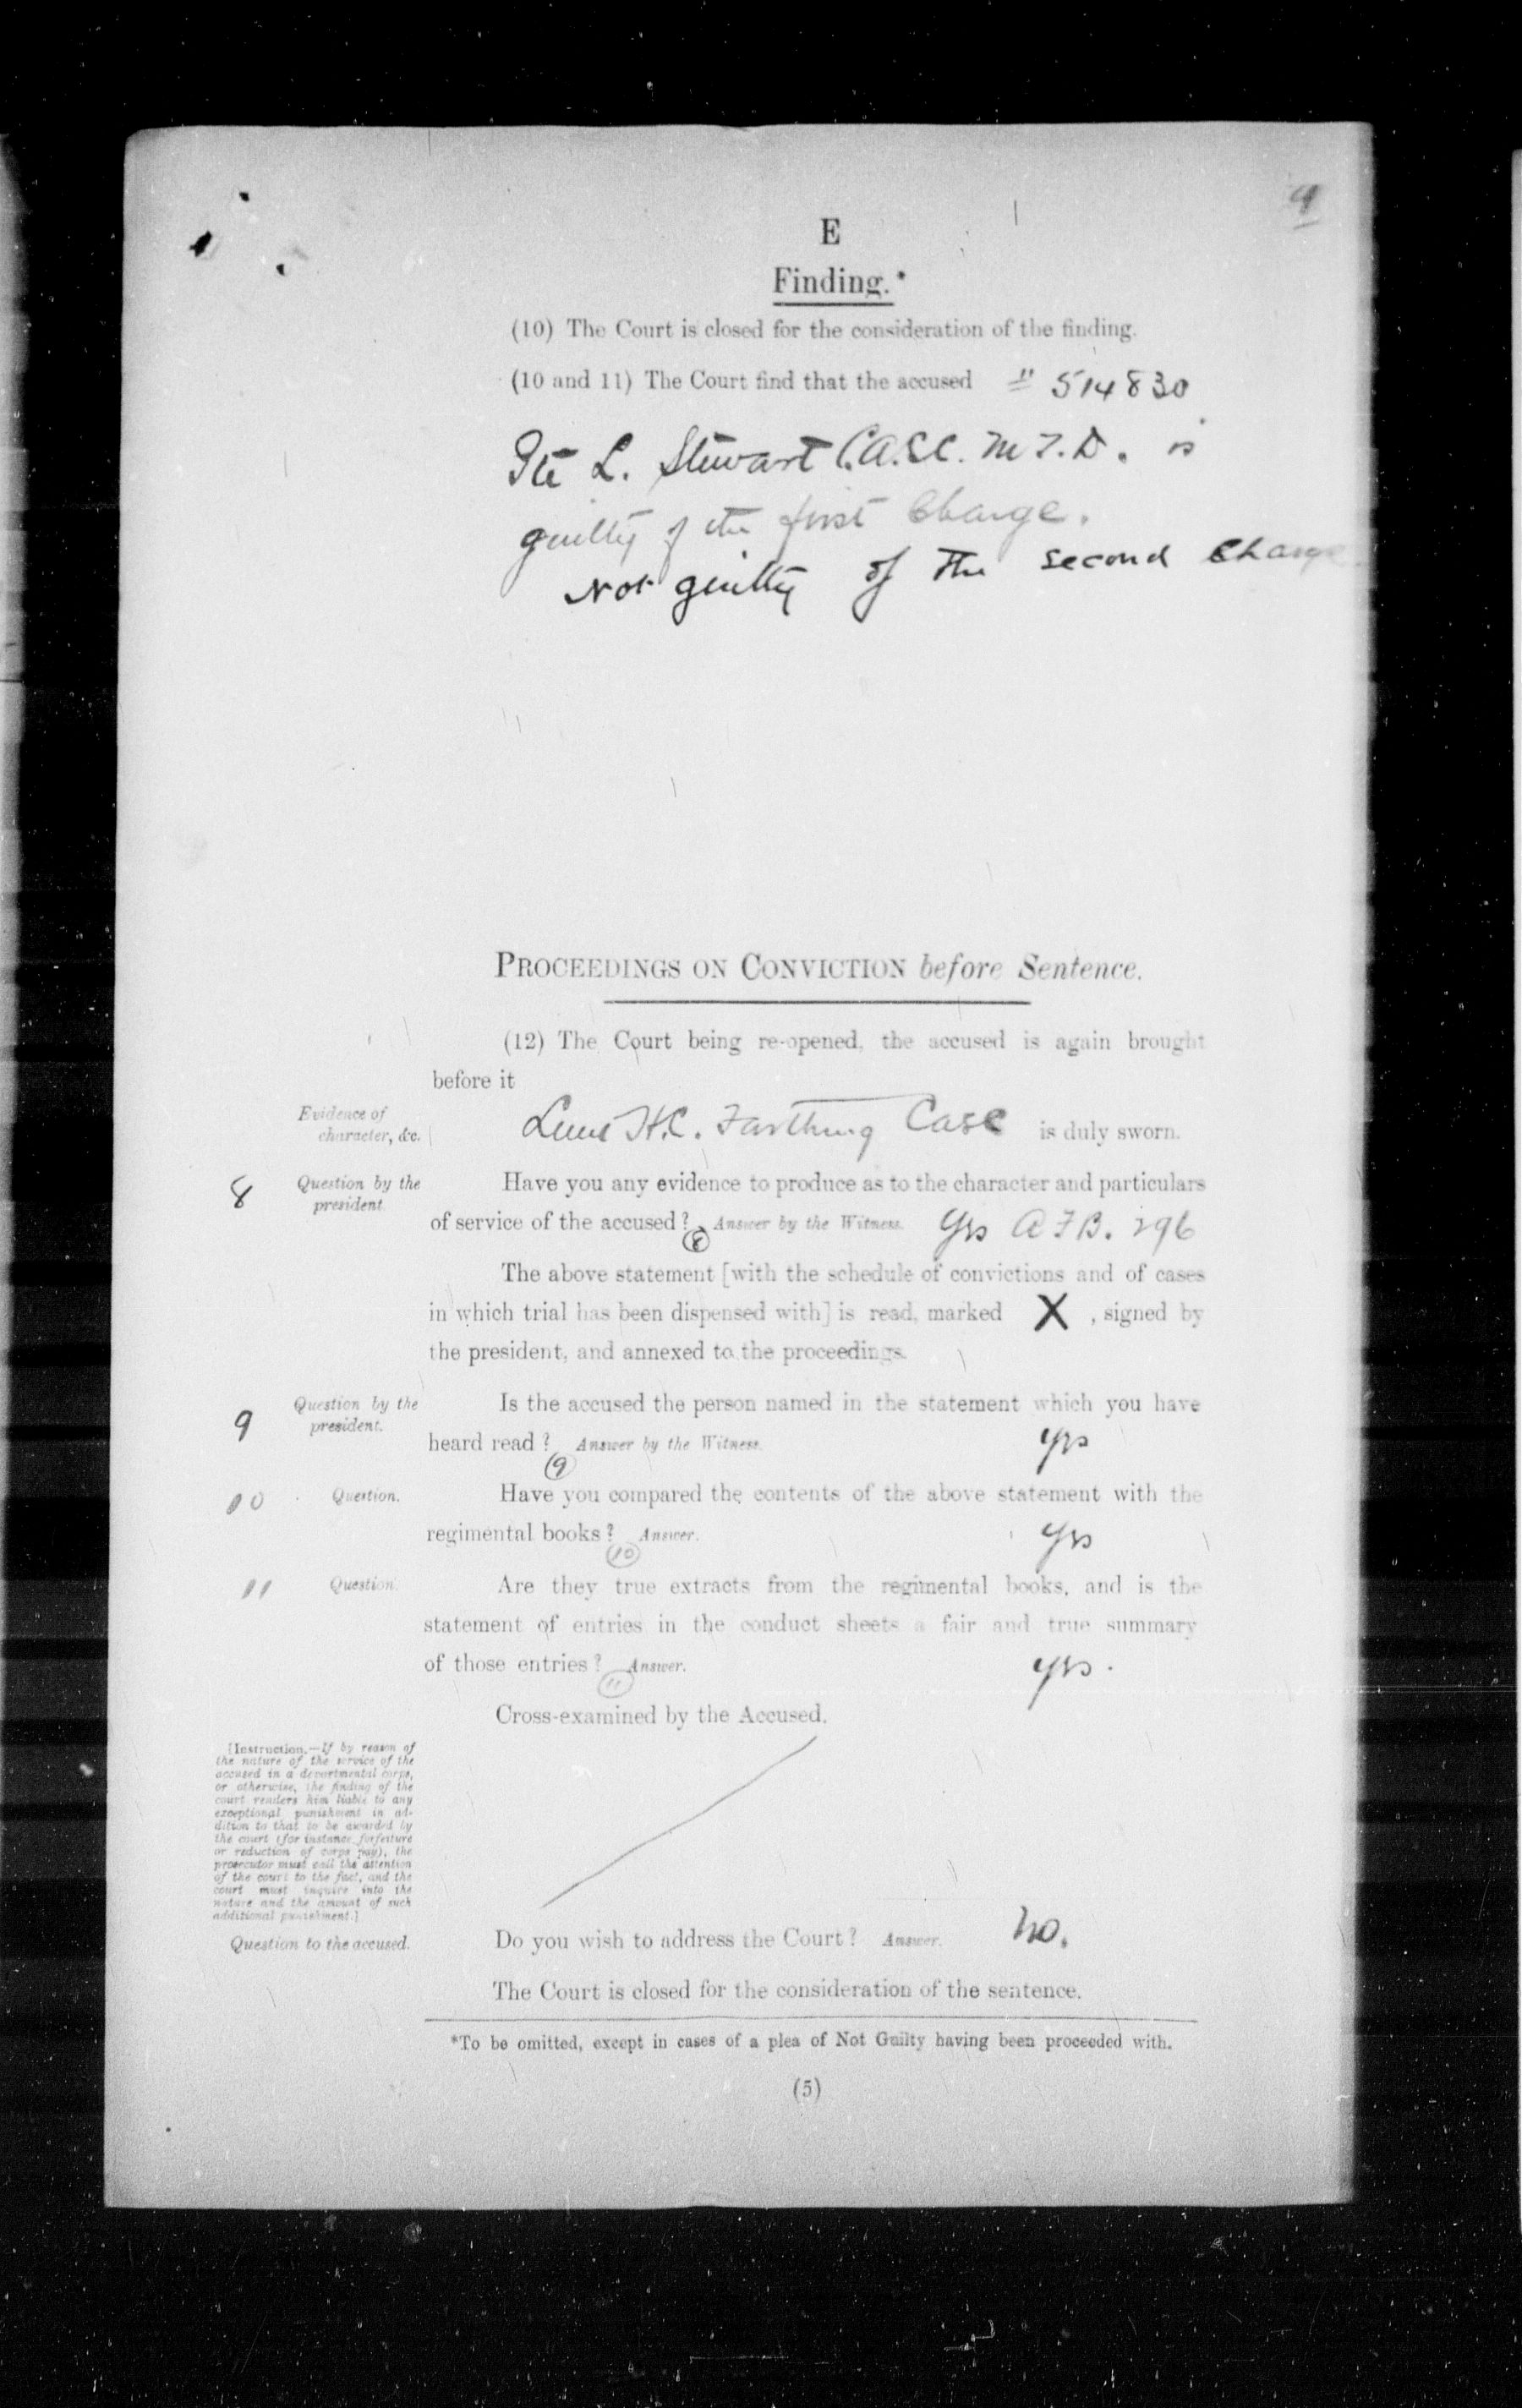 9
E
Finding.*
(10) The Court is closed for the consideration of the finding.
(10 and 11) The Court find that the accused # 514830
Pte L. Stewart C.A.S.C. M.T.D. is
guilty of the first Charge.
Not guilty of the second Charge
PROCEEDINGS ON CONVICTION before Sentence.
(12) The Court being re-opened, the accused is again brought
before it
Evidence of
character, &c.
Lieut H.C. Farthing CASC is duly sworn.
8 Question by the
president.
Have you any evidence to produce as to the character and particulars
of service of the accused? (8) Answer by the Witness. Yes A F B. 296
The above statement [with the schedule of convictions and of cases
in which trial has been dispensed with] is read, marked X , signed by
the president, and annexed to the proceedings.
9 Question by the
president.
Is the accused the person named in the statement which you have
heard read? (9) Answer by the Witness. yes
10 Question.
Have you compared the contents of the above statement with the
regimental books? (10) Answer. yes
11 Question.
Are they true extracts from the regimental books, and is the
statement of entries in the conduct sheets a fair and true summary
of those entries? (11) Answer. yes.
Cross-examined by the Accused.
[Instruction.—If by reason of
the nature of the service of the
accused in a departmental corps,
or otherwise, the finding of the
court renders him liable to any
exceptional punishment in ad-
dition to that to be awarded by
the court (for instance forfeiture
or reduction of corps pay), the
prosecutor must call the attention
of the court to the fact, and the
court must inquire into the
nature and the amount of such
additional punishment.]
Question to the accused.
Do you wish to address the Court? Answer. no.
The Court is closed for the consideration of the sentence.
*To be omitted, except in cases of a plea of Not Guilty having been proceeded with.
(5)